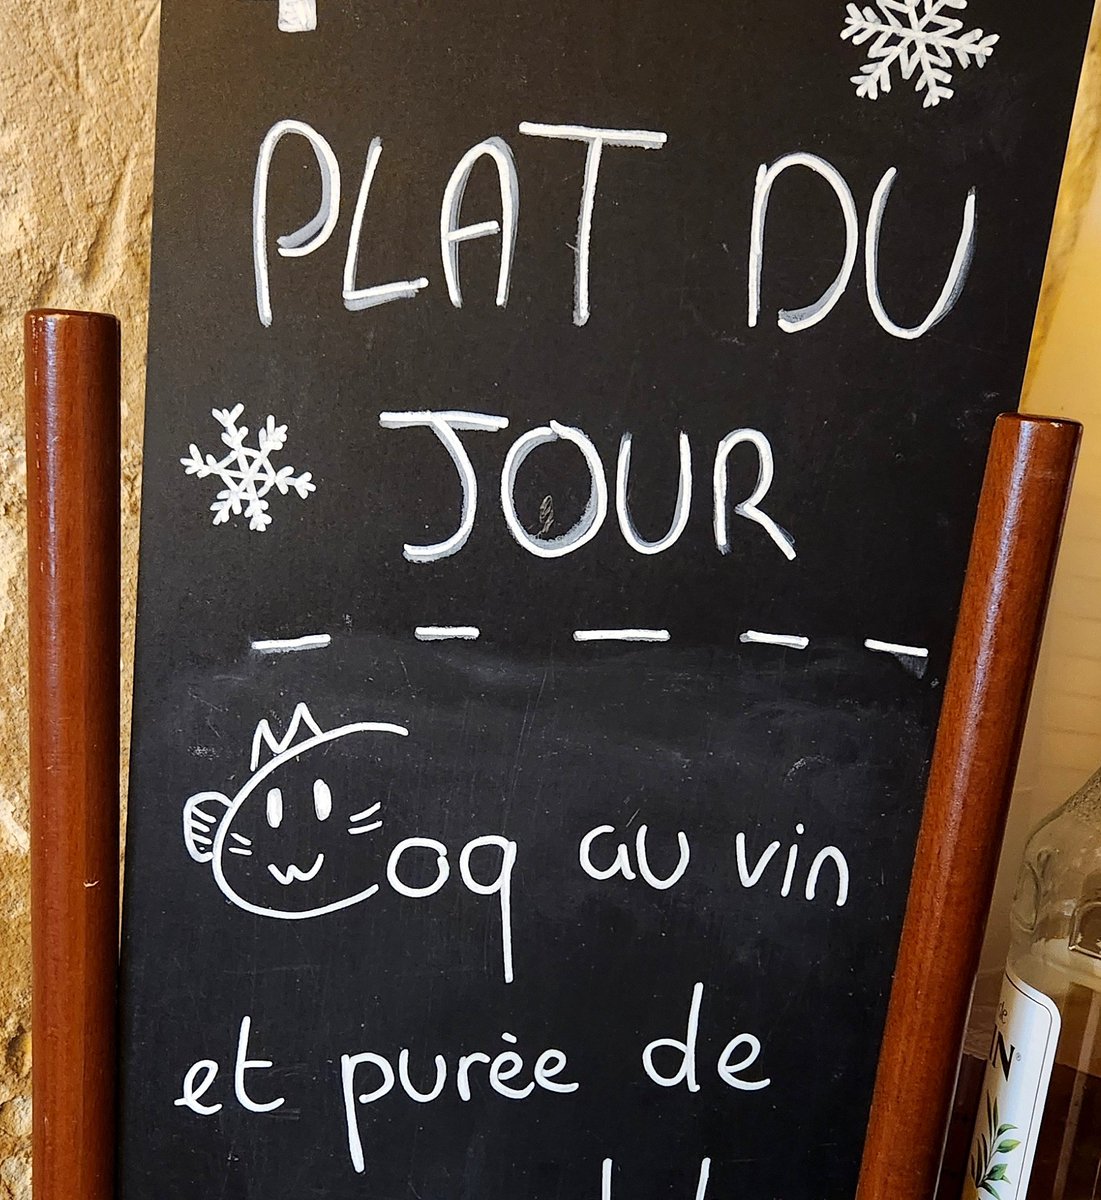 PLAT DU
JOUR
Coq au vin
et purèe de